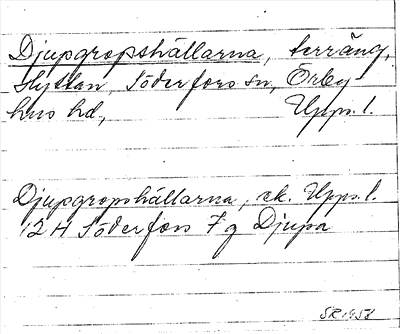 Djupgropshällarna, terräng,
Hyttan, Söderfors sn, Örby
hus hd, Upps. l.
Djupgropshällarna, ek. Upps. l.
12 H Söderfors 7 g Djupa
SR 1958